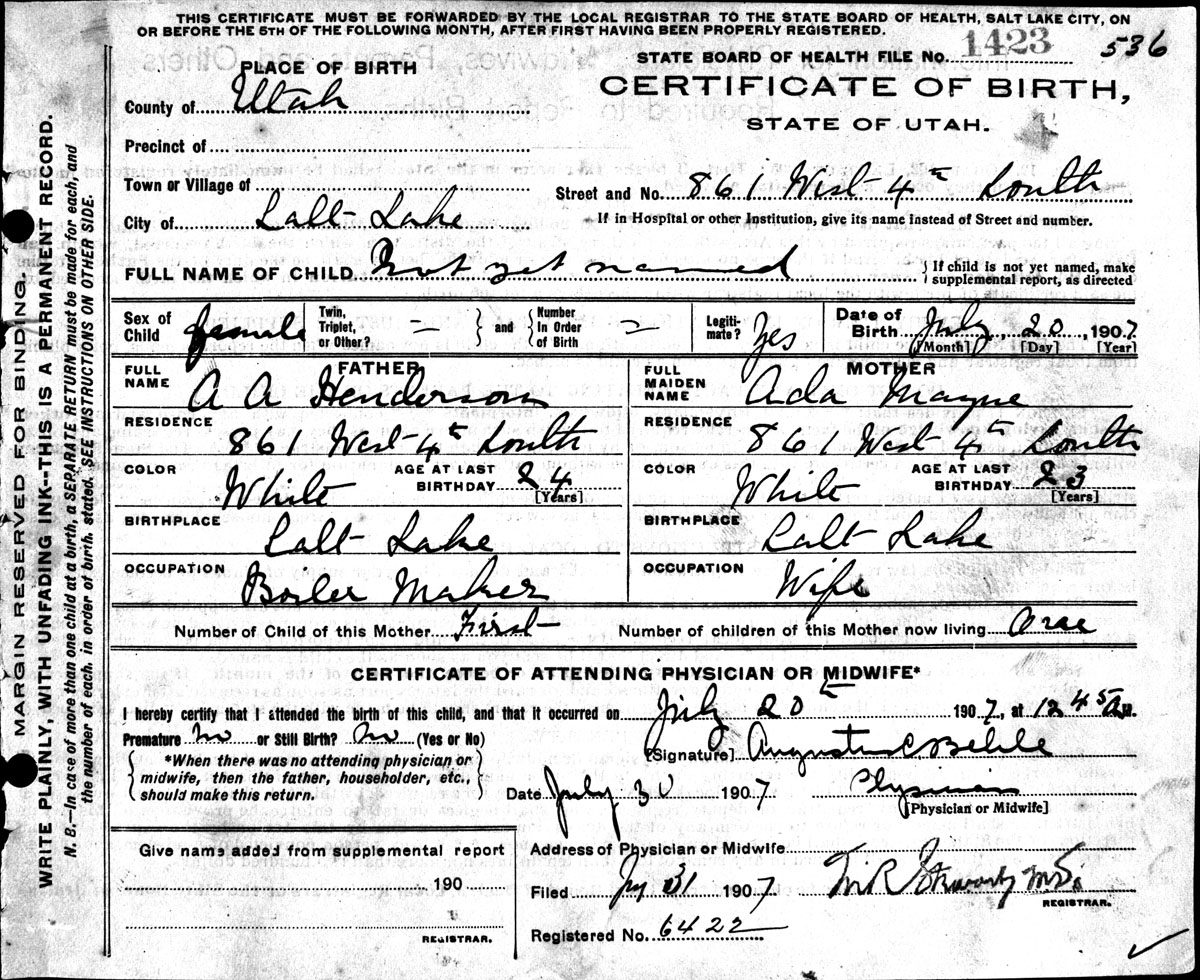 THIS CERTIFICATE MUST BE FORWARDED BY THE LOCAL REGISTRAR TO THE STATE BOARD OF HEALTH, SALT LAKE CITY, ON
OR BEFORE THE 5TH OF THE FOLLOWING MONTH, AFTER FIRST HAVING BEEN PROPERLY REGISTERED.
STATE BOARD OF HEALTH FILE No. 1423 536
PLACE OF BIRTH
CERTIFICATE OF BIRTH,
County of Utah
STATE OF UTAH.
Precinct of
Town or Village of
Street and No. 861 West 4th South
City of Salt Lake
If in Hospital or other Institution, give its name instead of Street and number.
FULL NAME OF CHILD Not yet named
} If child is not yet named, make
supplemental report, as directed
Sex of Child female
Twin, Triplet, or Other? =
and
Number In Order of Birth =
Legiti-mate? Yes
Date of Birth July, 20, 1907
[Month] [Day] [Year]
FATHER
FULL NAME A A Henderson
RESIDENCE 861 West 4th South
COLOR White
AGE AT LAST BIRTHDAY 24
[Years]
BIRTHPLACE Salt Lake
OCCUPATION Boiler Maker
MOTHER
FULL MAIDEN NAME Ada Mayne
RESIDENCE 861 West 4th South
COLOR White
AGE AT LAST BIRTHDAY 23
[Years]
BIRTHPLACE Salt Lake
OCCUPATION Wife
Number of Child of this Mother First
Number of children of this Mother now living One
CERTIFICATE OF ATTENDING PHYSICIAN OR MIDWIFE*
I hereby certify that I attended the birth of this child, and that it occurred on July 20 1907, at 12 45 A M.
Premature No or Still Birth? No (Yes or No)
[Signature] Augustus C Behle
*When there was no attending physician or
midwife, then the father, householder, etc.,
should make this return.
Date July 30 1907 Physician
[Physician or Midwife]
Give name added from supplemental report
190
REGISTRAR.
Address of Physician or Midwife
Filed Jy 31 1907
M.D.
REGISTRAR.
Registered No. 6422
MARGIN RESERVED FOR BINDING.
WRITE PLAINLY, WITH UNFADING INK--THIS IS A PERMANENT RECORD.
N. B.—In case of more than one child at a birth, a SEPARATE RETURN must be made for each, and
the number of each, in order of birth, stated. SEE INSTRUCTIONS ON OTHER SIDE.